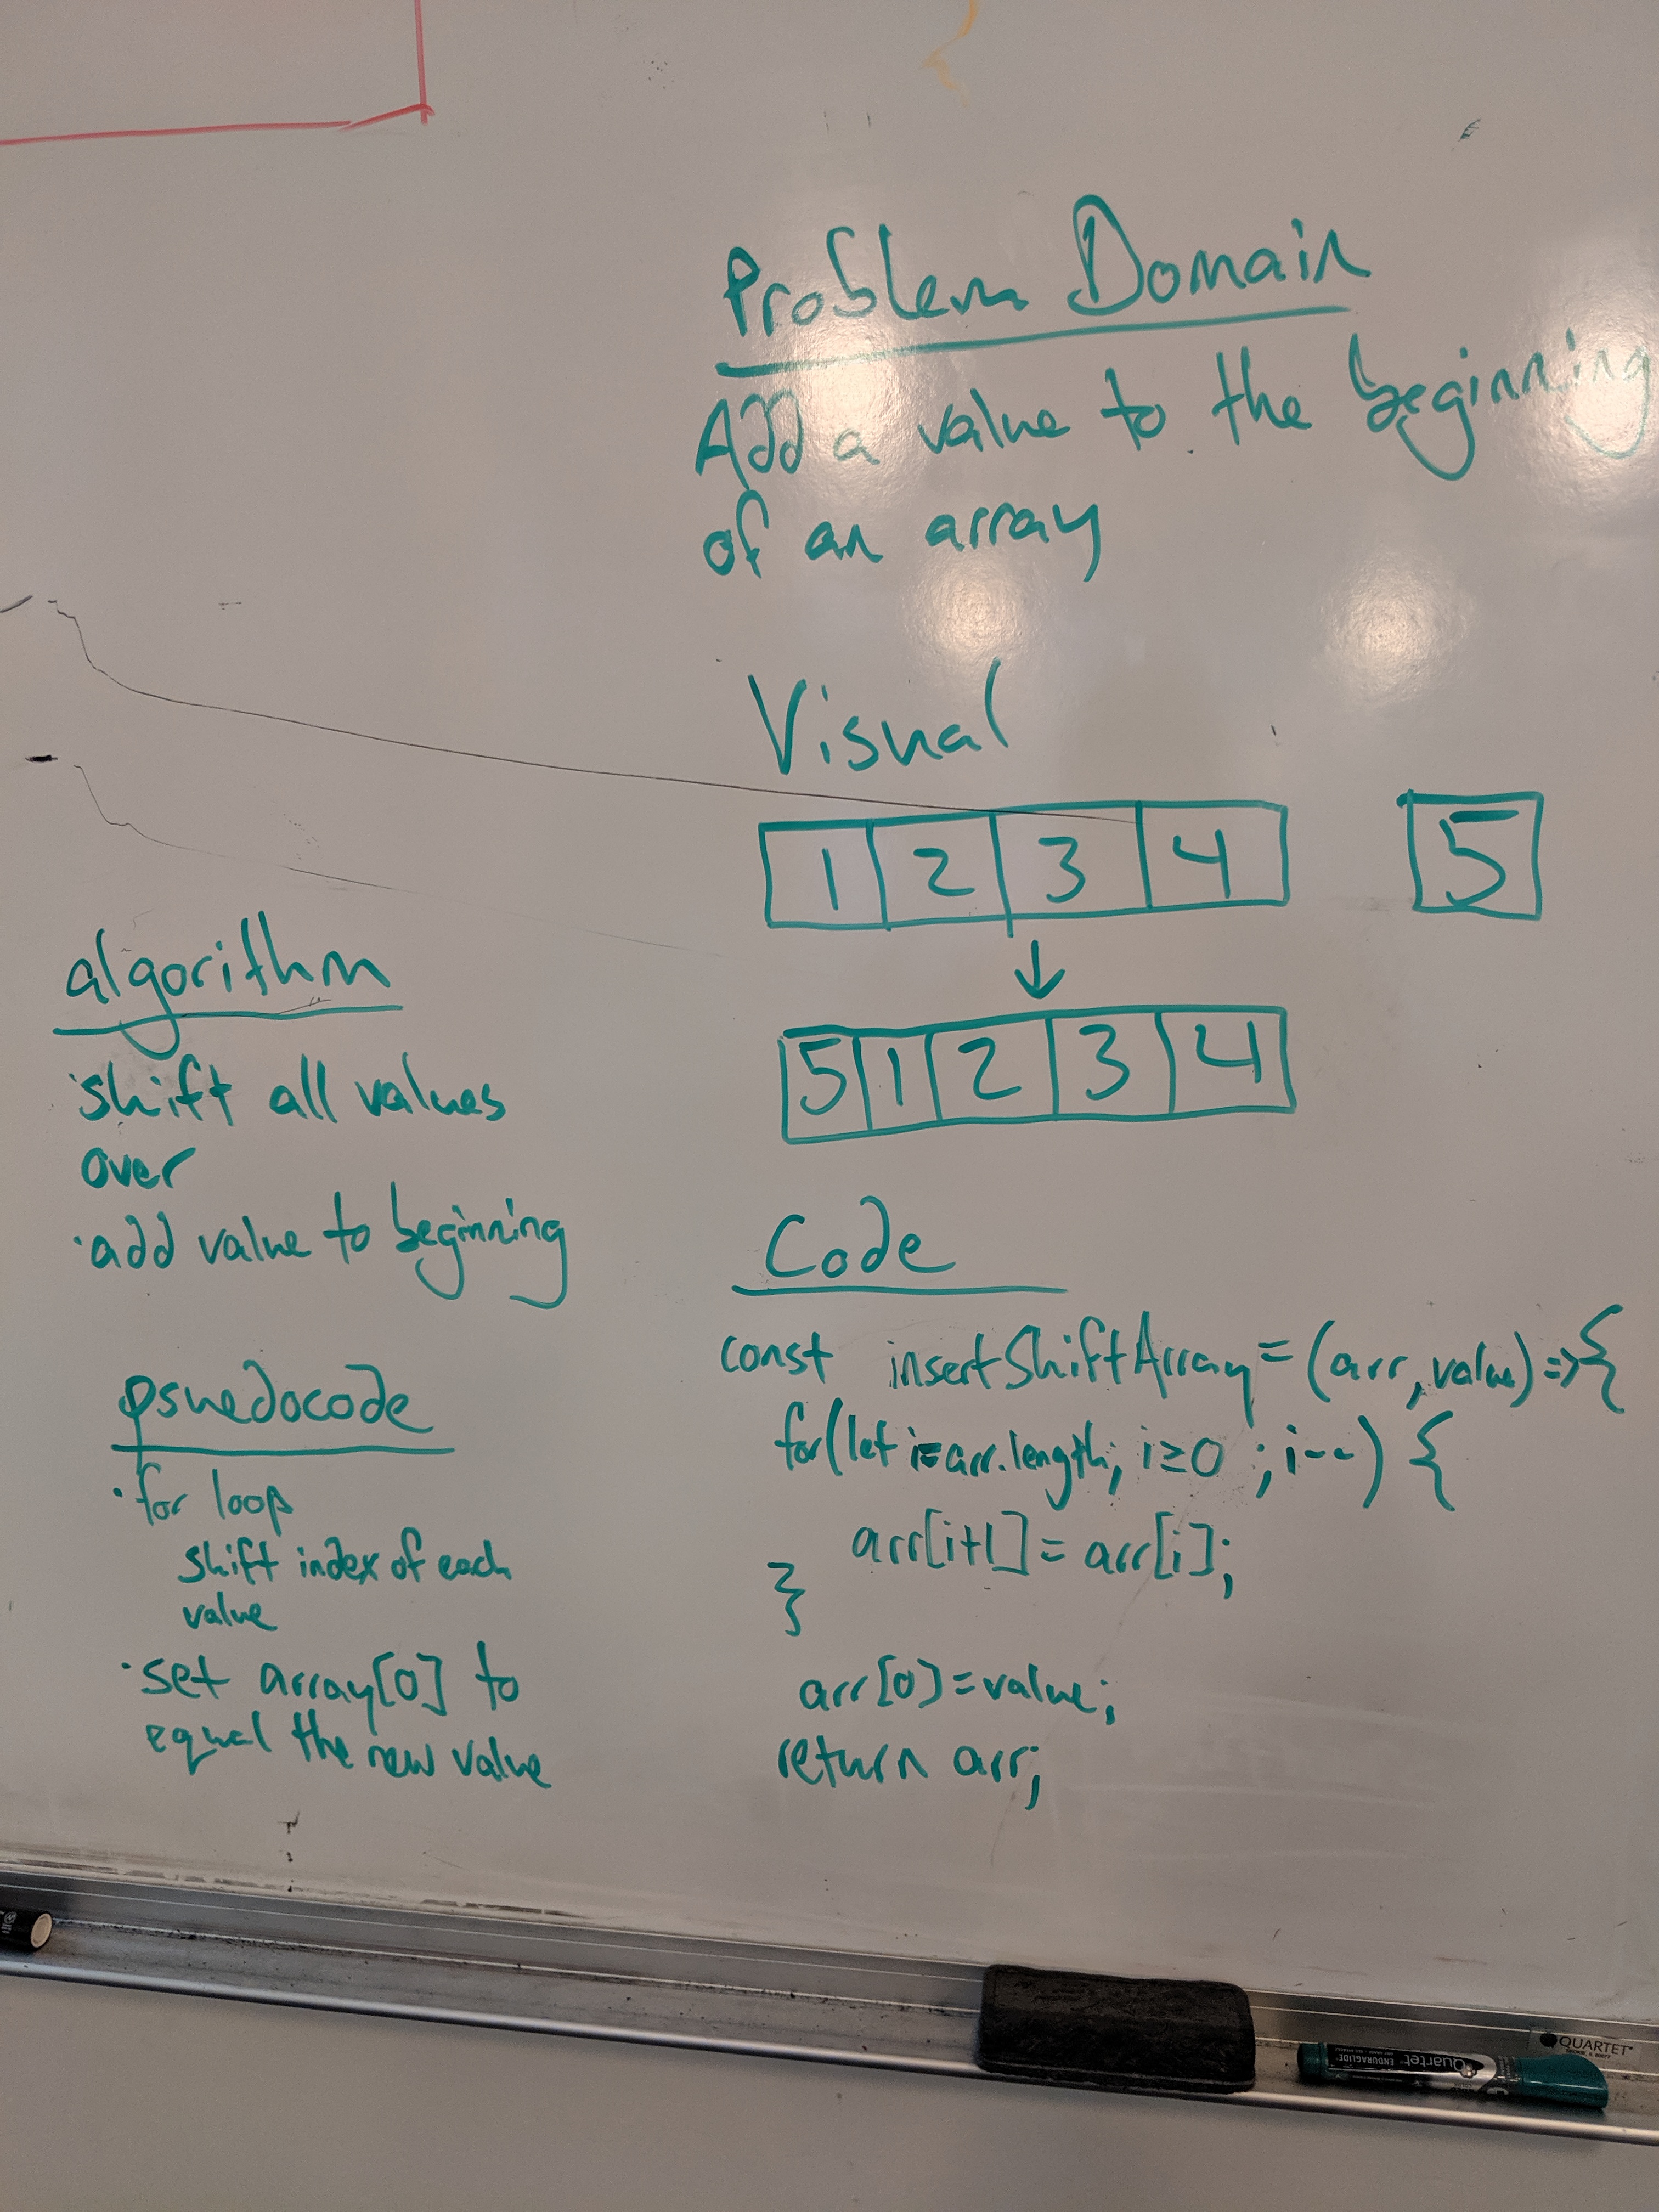 Problem Domain
Add a value to the beginning
of an array
Visual
1 2 3 4 5
5 1 2 3 4
algorithm
· shift all values
over
· add value to beginning
psuedocode
· for loop
shift index of each
value
· set array[0] to
equal the new value
Code
const insertShiftArray = (arr, value) => {
for(let i=arr.length; i≥0 ; i--) {
arr[i+1] = arr[i];
}
arr[0]=value;
return arr;
QUARTET
Quartet
ENDURAGLIDE